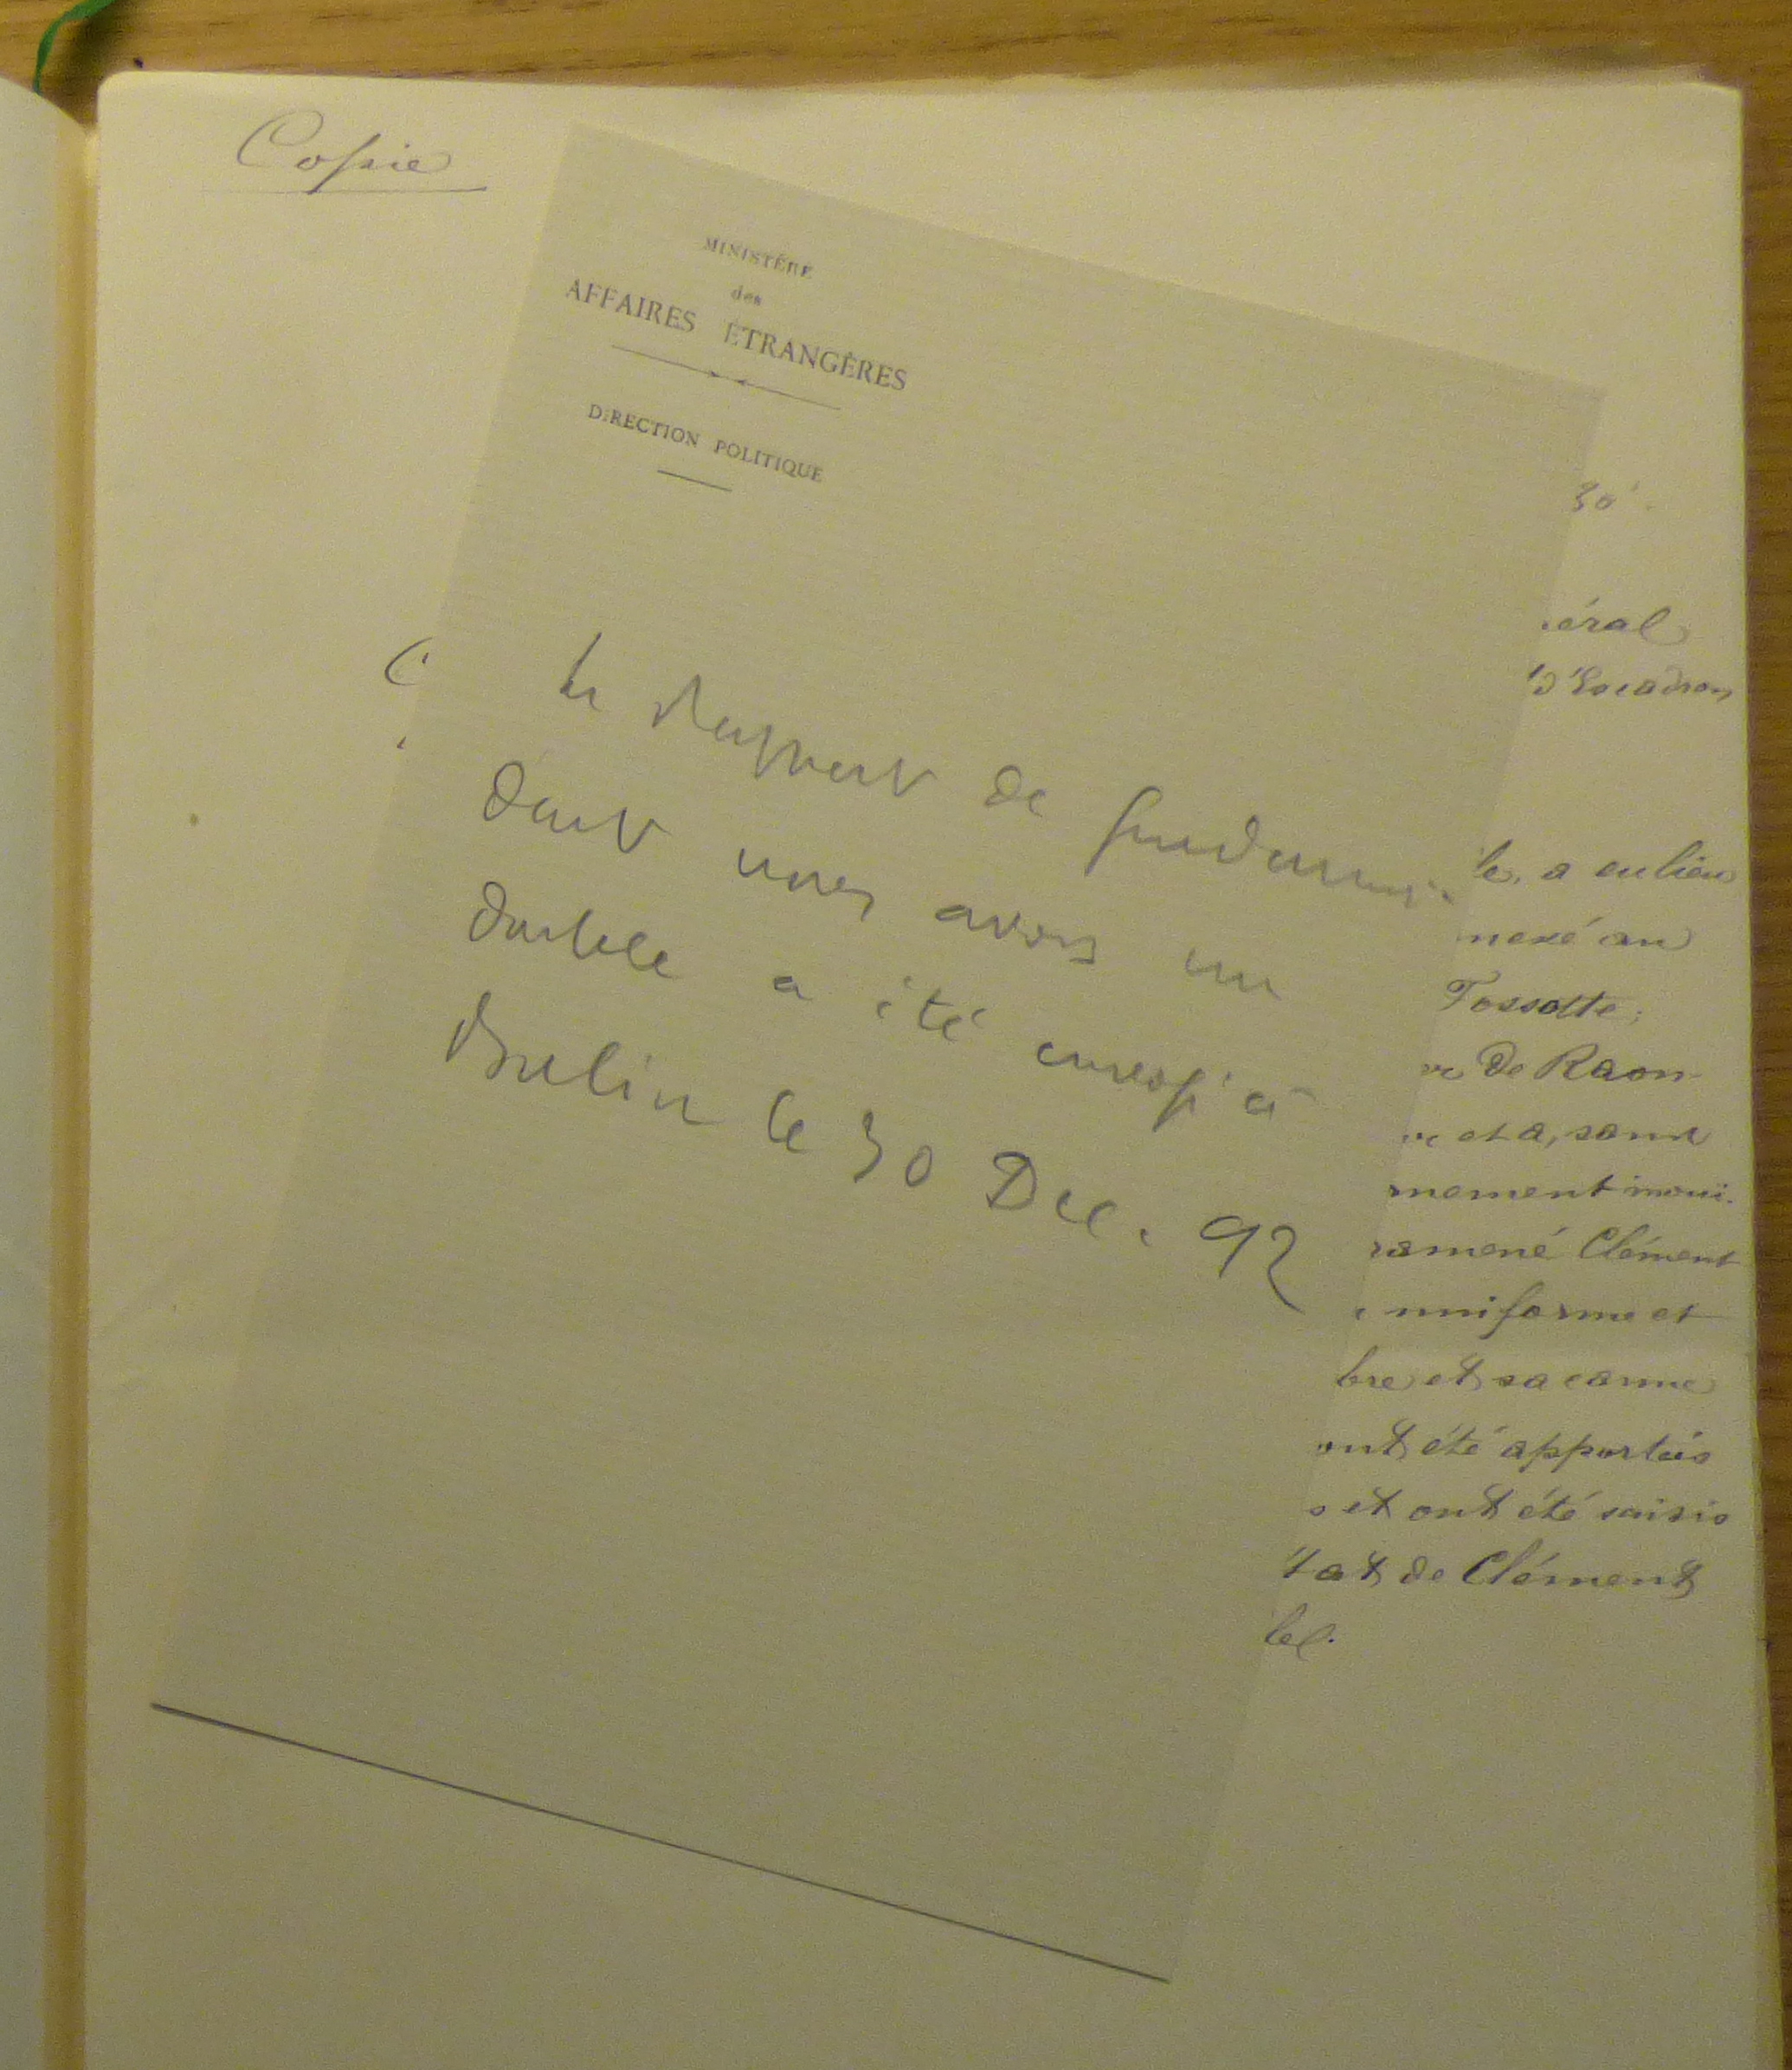 Copie
MINISTÈRE
des
AFFAIRES ÉTRANGÈRES
DIRECTION POLITIQUE
Le Rapport de gendarmerie
dont nous avons un
double a été envoyé à
Berlin le 30 Dec. 92
30
éral
d'Escadron
le, a eu lieu
nexé au
Tossotte;
de Raon-
et a, sans
moment inouï.
ramené Clément
uniforme et
bre et sa carme
ont été apportés
s et ont été saisis
tat de Clément
lel.